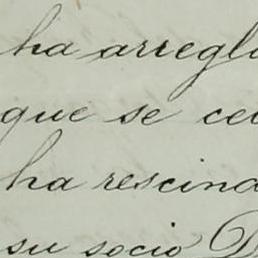 ha arregl
que se ce
ha rescind
su socio D